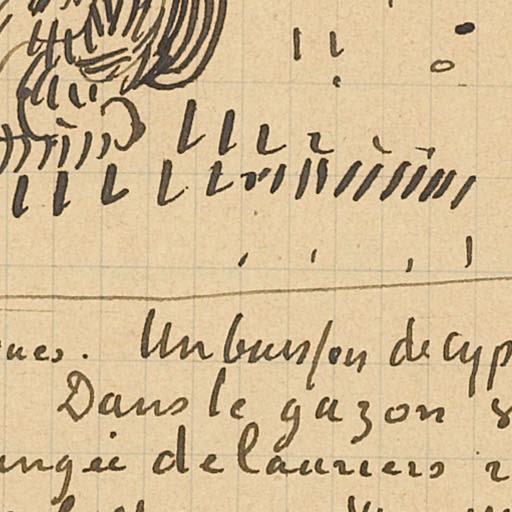 Un buisson de cyp
Dans le gazon
angée de lauriers